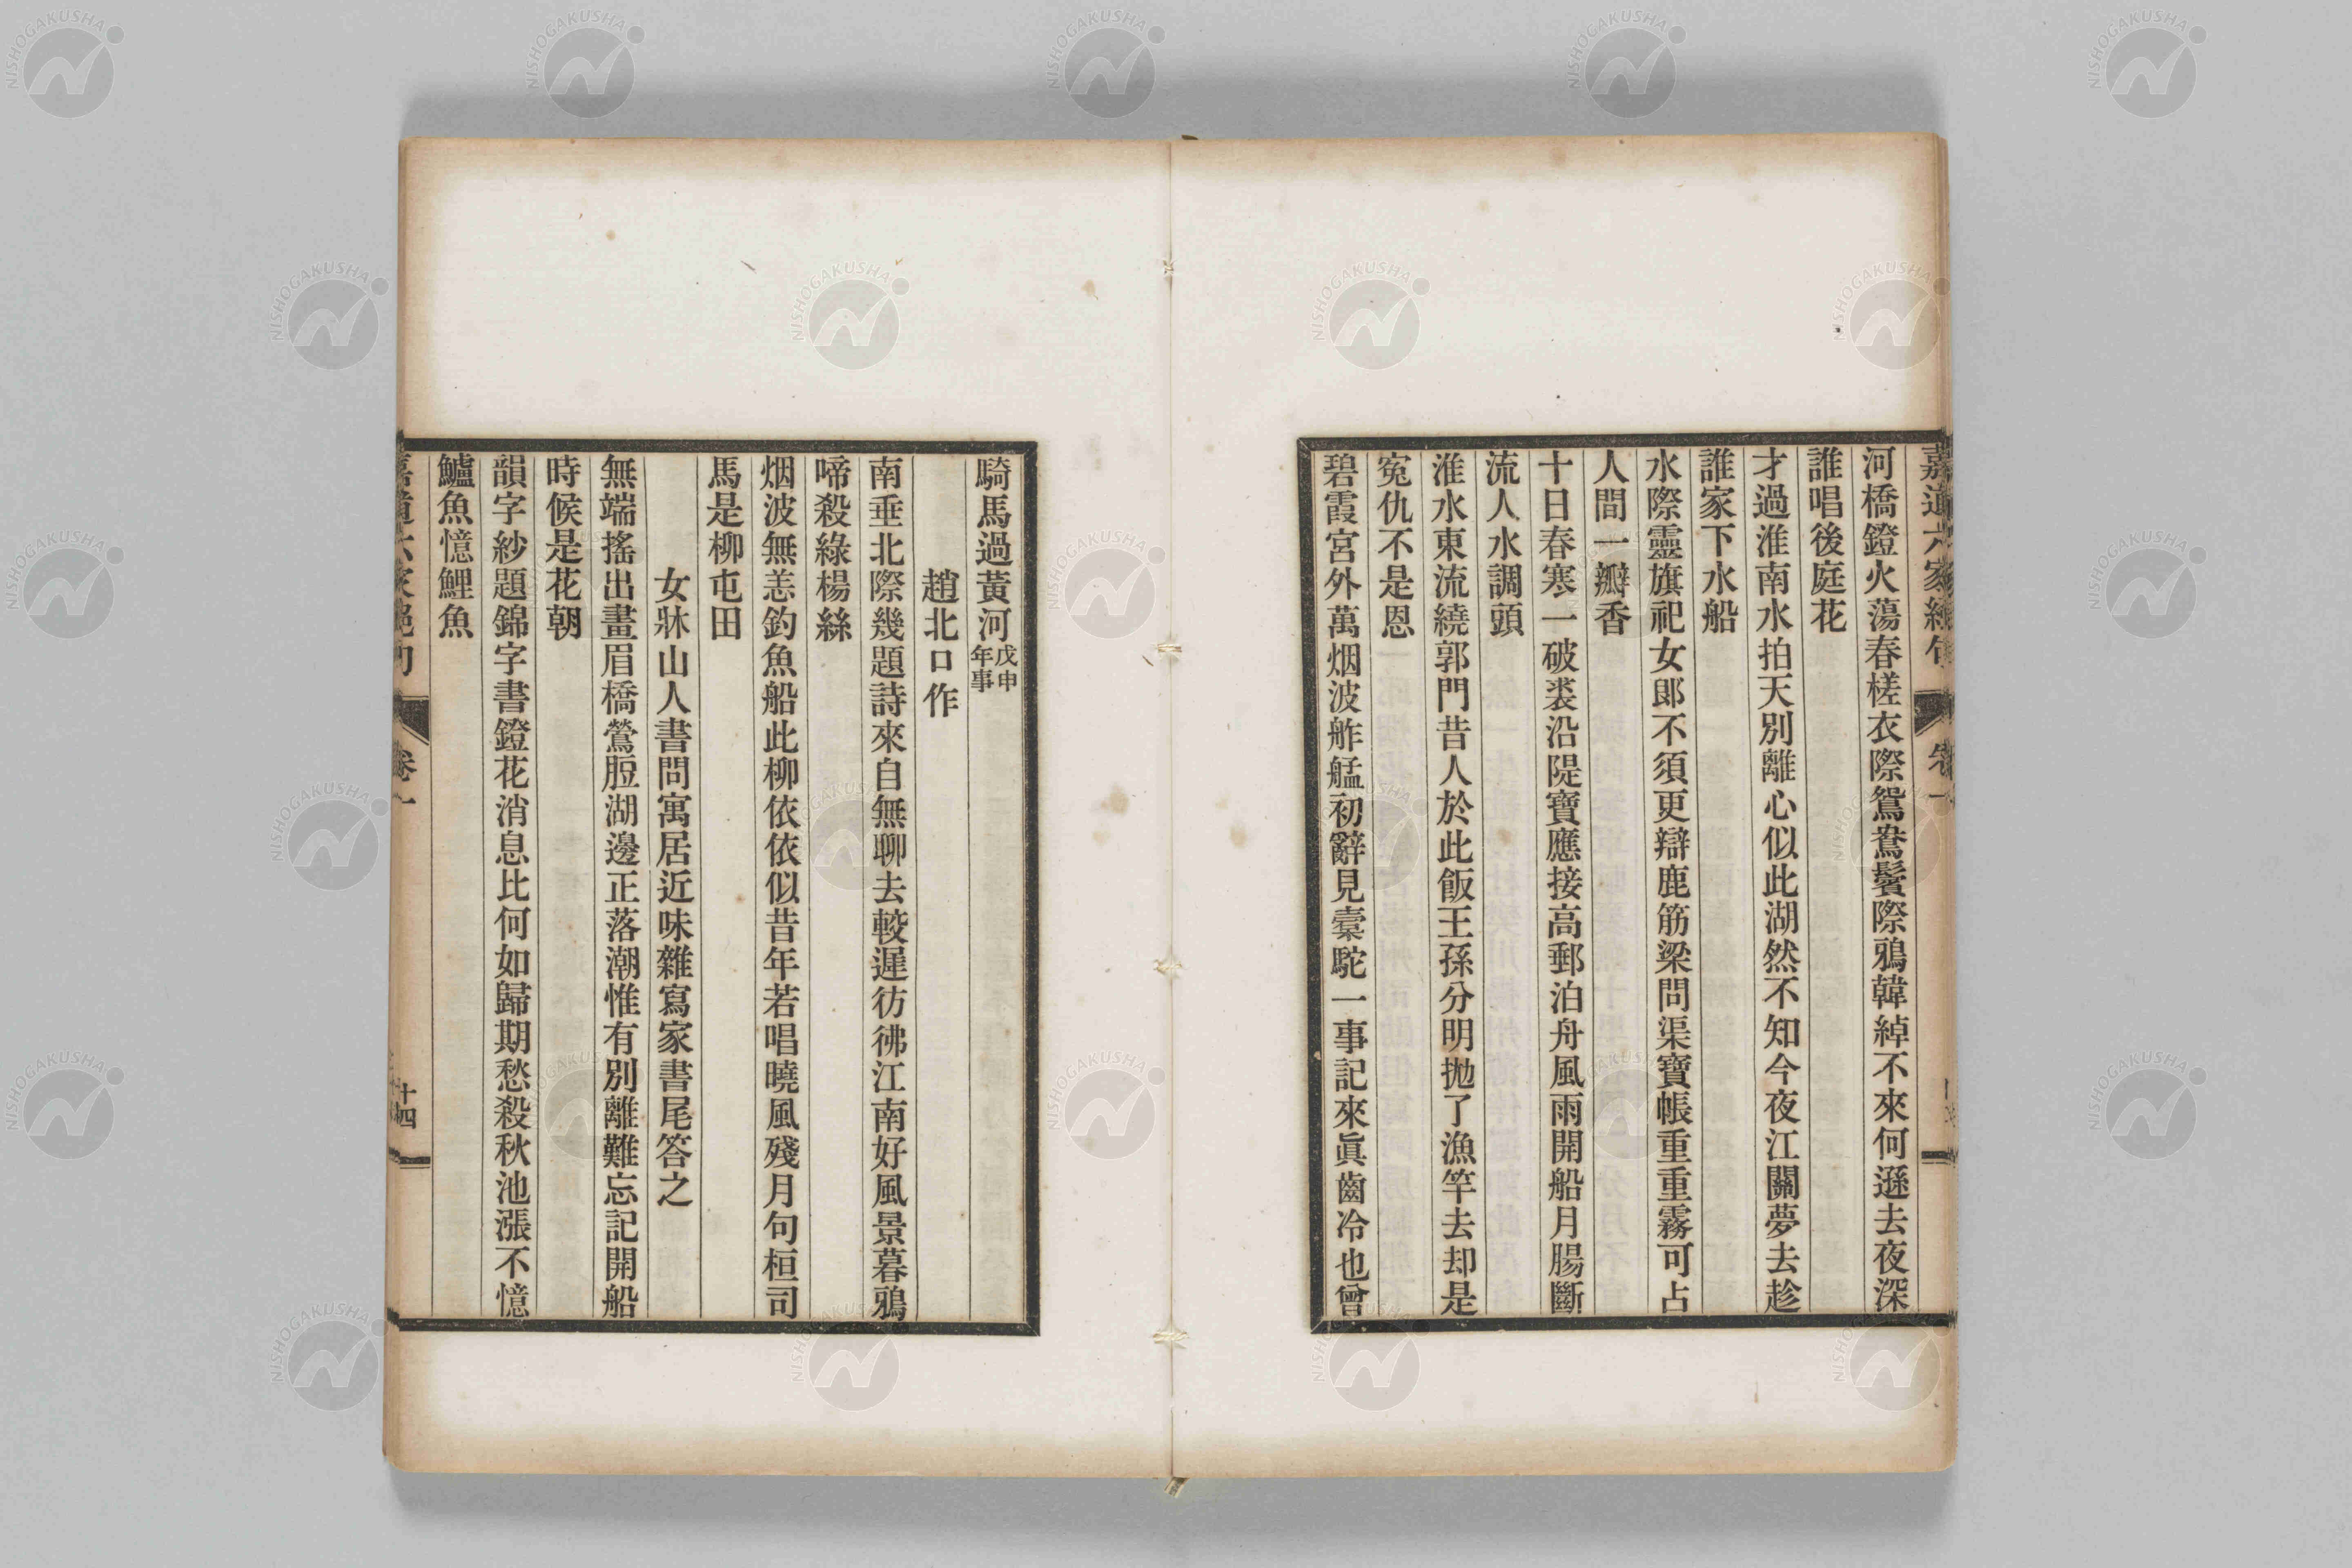 嘉道六家絕句
卷一
河橋鐙火蕩春槎衣際鴛鴦鬢際鴉韓綽不來何遜去夜深
誰唱後庭花
才過淮南水拍天別離心似此湖然不知今夜江關夢去趁
誰家下水船
水際靈旗祀女郎不須更辯鹿筋梁問渠寶帳重重霧可占
人間一瓣香
十日春寒一破裘沿隄寶應接高郵泊舟風雨開船月腸斷
流人水調頭
淮水東流繞郭門昔人於此飯王孫分明拋了漁竿去却是
寃仇不是恩
碧霞宮外萬烟波舴艋初辭見橐駝一事記來眞齒冷也曾
騎馬過黃河戊申年事
趙北口作
南垂北際幾題詩來自無聊去較遲彷彿江南好風景暮鴉
啼殺綠楊絲
烟波無恙釣魚船此柳依依似昔年若唱曉風殘月句桓司
馬是柳屯田
女牀山人書問寓居近味雜寫家書尾答之
無端搖出畫眉橋鶯脰湖邊正落潮惟有別離難忘記開船
時候是花朝
韻字紗題錦字書鐙花消息比何如歸期愁殺秋池漲不憶
鱸魚憶鯉魚
嘉道六家絕句
卷一
十四
NISHOGAKUSHA